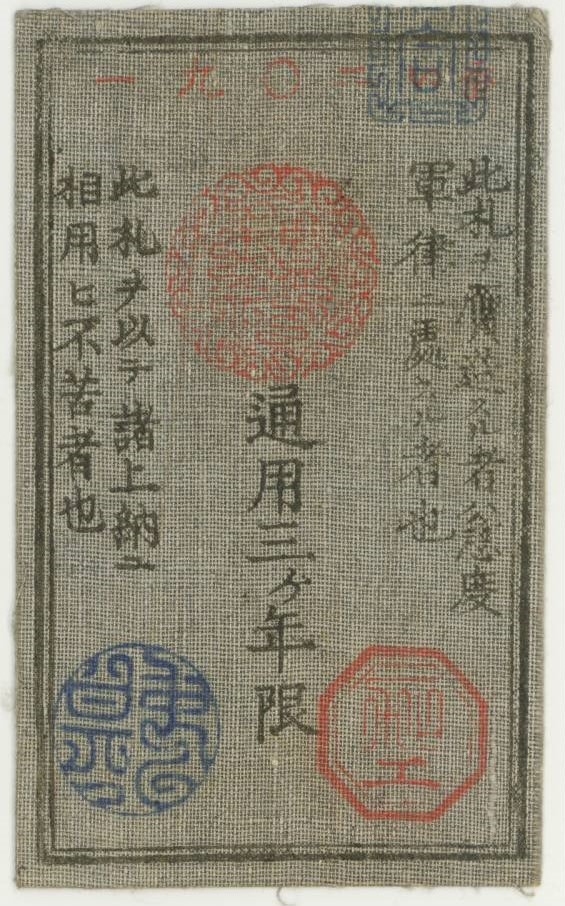 一九〇二
此札ヲ贋造スル者ハ急度
軍律ニ處スル者也
通用三ヶ年限
此札ヲ以テ諸上納ニ
相用ヒ不苦者也